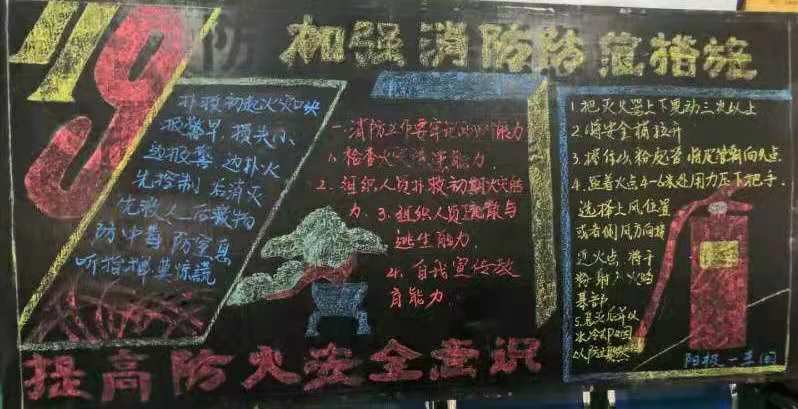 119
加强消防防范措施
扑救初起火灾知识
报警早，损失小
边报警 边扑火
先控制 后消灭
先救人 后救物
防中毒 防窒息
听指挥 莫惊慌
一 消防工作要牢记的四个能力
1. 检查火灾 能力.
2. 组织人员扑救初期火灾能
力. 3. 组织人员疏散与
逃生能力.
4. 自我宣传教
育能力.
1 把灭火器上下晃动三次以上
2. 将安全销拉开
3. 握住小粉皮管 将皮管朝向火点
4. 距着火点4-6米处用力压下把手.
选择上风位置
或者侧风方向接
近火点，将干
粉射入火焰
基部
5.
水冷却
以防止
提高防火安全意识
阳极一车间